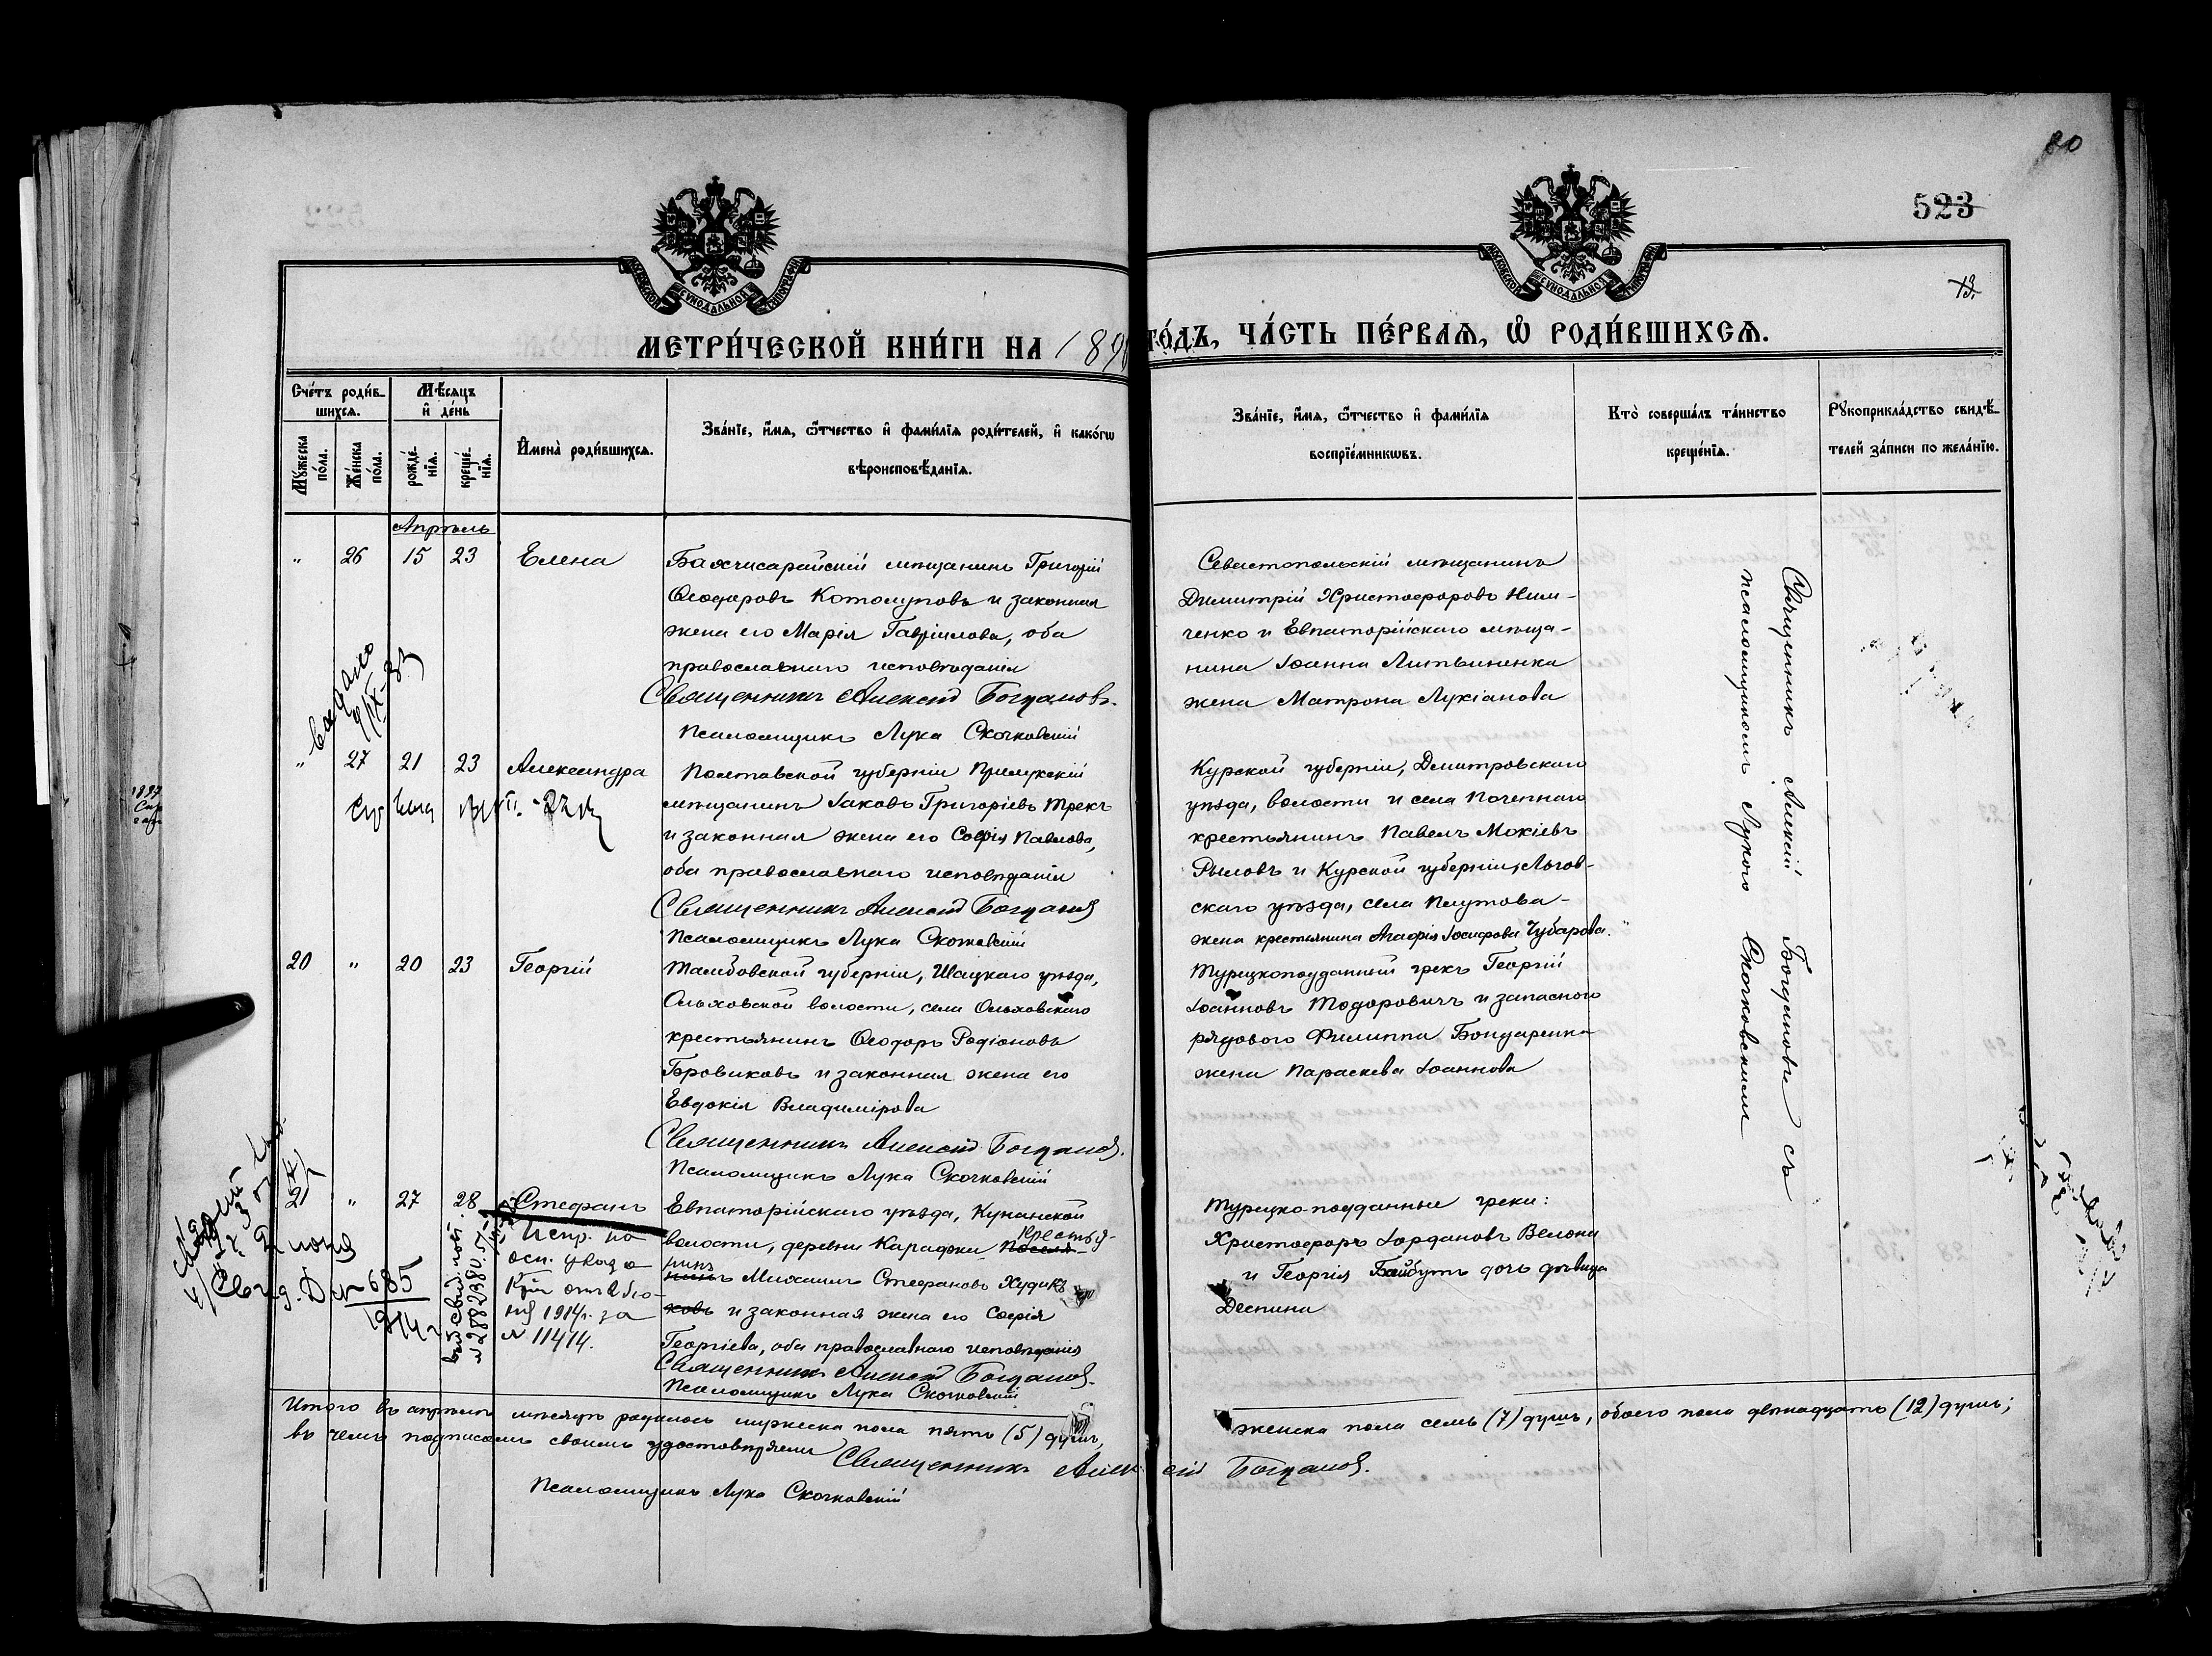 80
523
13.
МОСКОВСКОЙ СѴНОДАЛЬНОЙ ТИПОГРАФІИ
МОСКОВСКОЙ СѴНОДАЛЬНОЙ ТИПОГРАФІИ
МЕТРИ́ЧЕСКОЙ КНИ́ГИ НА 189
ГО́ДЪ, ЧА́СТЬ ПЕ́РВАѦ, Ѡ҆ РОДИ́ВШИХСѦ.
Сче́тъ роди́в-
шихсѧ.
Мѣ́сѧцъ
и҆ де́нь
Мꙋ́жеска
по́ла.
Же́нска
по́ла.
рожде́-
нїѧ.
креще́-
нїѧ.
И҆мена̀ роди́вшихсѧ.
Зва́нїе, и҆́мѧ, ѻ҆́тчество и҆ фами́лїѧ роди́телей, и҆ како́гѡ
вѣроисповѣ́данїѧ.
Зва́нїе, и҆́мѧ, ѻ҆́тчество и҆ фами́лїѧ
воспрїе́мникѡвъ.
Кто̀ соверша́лъ та́инство
креще́нїѧ.
Рꙋкоприкла́дство свидѣ́-
телей за́писи по жела́нїю.
Апрѣль
" 26 15 23 Елена
Бахчисарайскій мѣщанинъ Григорій
Ѳеодоровъ Котолуповъ и законная
жена его Марія Гавріилова, оба
православнаго исповѣданія
Священникъ Алексій Богдановъ.
Псаломщикъ Лука Скочковскій
Севастопольскій мѣщанинъ
Димитрій Христофоровъ Ним-
ченко и Евпаторійскаго мѣща-
нина Іоанна Литвиненка
жена Матрона Лукіанова
Священникъ Алексій Богдановъ съ
псаломщикомъ Лукою Скочковскимъ
" 27 21 23 Александра
Полтавской губерніи Прилукскій
мѣщанинъ Іаковъ Григоріевъ Трекъ
и законная жена его Софія Павлова,
оба православнаго исповѣданія
Священникъ Алексій Богдановъ
Псаломщикъ Лука Скочковскій
Курской губерніи, Дмитровскаго
уѣзда, волости и села Поченнаго
крестьянинъ Павелъ Мокіевъ
Рыловъ и Курской губерніи, Льгов-
скаго уѣзда, села Плутова-
жена крестьянина Агафія Іосифова Чубарова."
20 " 20 23 Георгій
Тамбовской губерніи, Шацкаго уѣзда,
Ольховской волости, села Ольховскаго
крестьянинъ Ѳеодоръ Родіоновъ
Бровиковъ и законная жена его
Евдокія Владимірова
Священникъ Алексій Богдановъ.
Псаломщикъ Лука Скочковскій
Турецкоподданный грекъ Георгій
Іоанновъ Тодоровичъ и запаснаго
рядового Филиппа Бондаренка
жена Параскева Іоаннова
21 " 27 28 Стефанъ
Испр. на
осн. указа
1914г. за
№ 11414.
Евпаторійскаго уѣзда, Кунанской
волости, деревни Караджи Поселя- Крестья-
нинъ Михаилъ Стефановъ Худикъ
ковъ и законная жена его Софія
Георгіева, оба православнаго исповѣданія
Священникъ Алексій Богдановъ.
Псаломщикъ Лука Скочковскій
Турецко-подданные греки:
Христофоръ Іордановъ Велони
и Георгія Байбутъ дочь дѣвица
Деспина
685
1914г
Итого въ апрѣлѣ мѣсяцѣ родилось мужеска пола пять (5) душъ,
женска пола семь (7) душъ, обоего пола двѣнадцать (12) душъ;
въ чемъ подписомъ своимъ удостовѣряемъ
Священникъ Алексій Богдановъ.
Псаломщикъ Лука Скочковскій